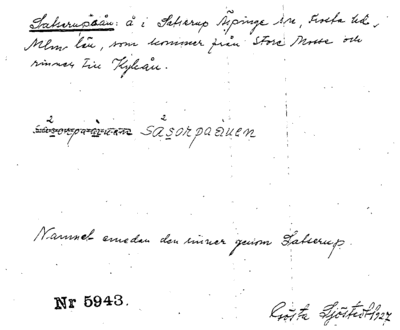 Saxerupsån: å i Saxerup Äspinge sn, Frosta hd,
Mlm län, som kommer från Store Mosse och
rinner till Kyleån.
såsorpaåuen
Namnet emedan den rinner genom Saxerup.
Nr 5943.
Gösta Sjöstedt 1927